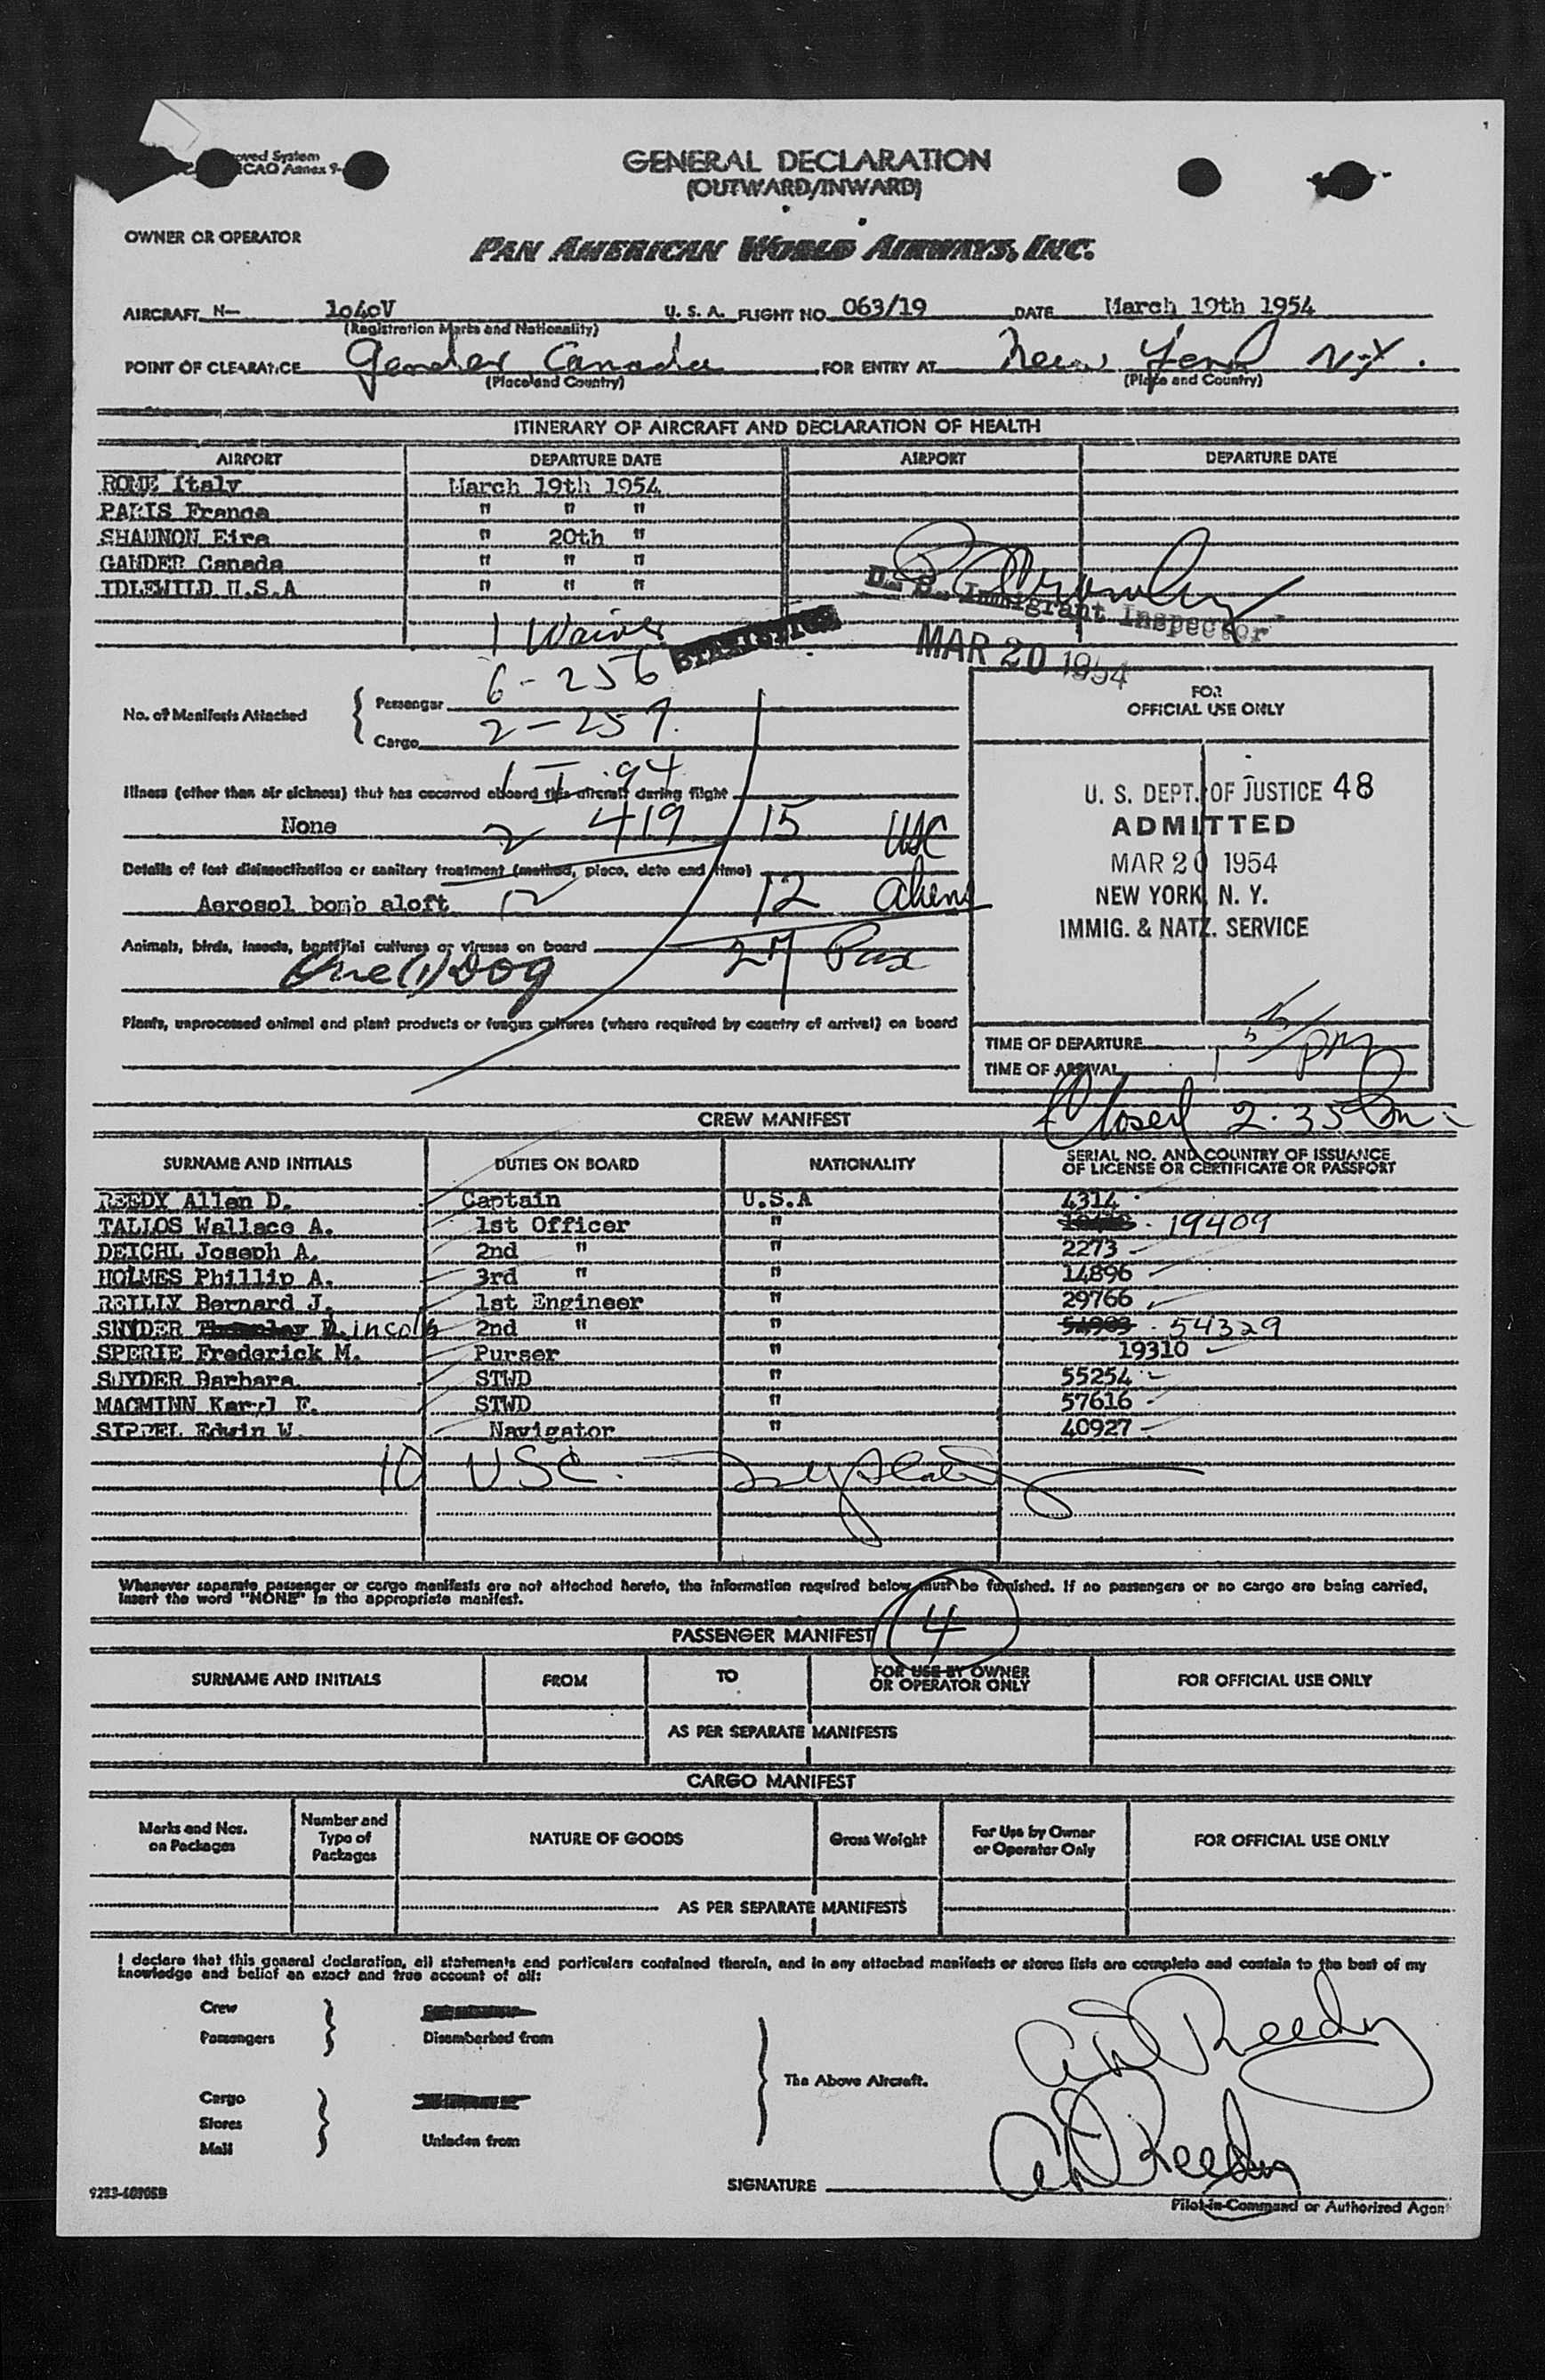 GENERAL DECLARATION
(OUTWARD/INWARD)
OWNER OR OPERATOR PAN AMERICAN WORLD AIRWAYS, INC.
AIRCRAFT N- 1040V U. S. A. FLIGHT NO. 063/19 DATE March 19th 1954
(Registration Marks and Nationality)
POINT OF CLEARANCE Gander Canada FOR ENTRY AT New York N-Y.
(Place and Country) (Place and Country)
ITINERARY OF AIRCRAFT AND DECLARATION OF HEALTH
AIRPORT DEPARTURE DATE AIRPORT DEPARTURE DATE
ROME Italy March 19th 1954
PARIS France " " "
SHANNON Eire " 20th "
GANDER Canada " " "
IDLEWILD U.S.A " " "
U. S. Immigrant Inspector
MAR 20 1954
1 Waiver
STATISTICS
6 - 256
No. of Manifests Attached
Passenger
2 - 257
Cargo
FOR
OFFICIAL USE ONLY
Illness (other than air sickness) that has occurred aboard this aircraft during flight
None
2 419 15 USC
Details of last disinsectization or sanitary treatment (method, place, date and time)
Aerosol bomb aloft 12 Aliens
Animals, birds, insects, bacterial cultures or viruses on board
One (1) Dog 27 Pax
Plants, unprocessed animal and plant products or fungus cultures (where required by country of arrival) on board
U. S. DEPT. OF JUSTICE 48
ADMITTED
MAR 20 1954
NEW YORK, N. Y.
IMMIG. & NATZ. SERVICE
TIME OF DEPARTURE
TIME OF ARRIVAL
Closed 2.35 Pm
CREW MANIFEST
SURNAME AND INITIALS DUTIES ON BOARD NATIONALITY SERIAL NO. AND COUNTRY OF ISSUANCE
OF LICENSE OR CERTIFICATE OR PASSPORT
REEDY Allen D. Captain U.S.A 4314
TALLOS Wallace A. 1st Officer " 19409
DEICHL Joseph A. 2nd " " 2273
HOLMES Phillip A. 3rd " " 14896
REILLY Bernard J. 1st Engineer " 29766
SNYDER Lincoln 2nd " " 54329
SPERIE Frederick M. Purser " 19310
SNYDER Barbara STWD " 55254
MACMINN Karyl F. STWD " 57616
SIPPEL Edwin W. Navigator " 40927
10 USC.
Whenever separate passenger or cargo manifests are not attached hereto, the information required below must be furnished. If no passengers or no cargo are being carried,
insert the word "NONE" in the appropriate manifest.
4
PASSENGER MANIFEST
SURNAME AND INITIALS FROM TO FOR USE BY OWNER
OR OPERATOR ONLY FOR OFFICIAL USE ONLY
AS PER SEPARATE MANIFESTS
CARGO MANIFEST
Marks and Nos.
on Packages
Number and
Type of
Packages
NATURE OF GOODS
Gross Weight
For Use by Owner
or Operator Only
FOR OFFICIAL USE ONLY
AS PER SEPARATE MANIFESTS
I declare that this general declaration, all statements and particulars contained therein, and in any attached manifests or stores lists are complete and contain to the best of my
knowledge and belief an exact and true account of all:
Crew
Passengers Disembarked from
The Above Aircraft.
Cargo
Stores
Mail Unladen from
A D Reedy
A D Reedy
SIGNATURE
Pilot-in-Command or Authorized Agent